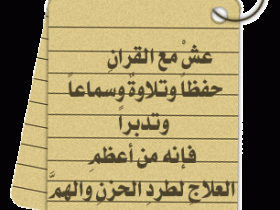 عشْ مع القرآنِ
حفظاً وتلاوةً وسماعاً
وتدبراً
فإنه من أعظمِ
العلاجِ لطردِ الحزنِ والهمَّ